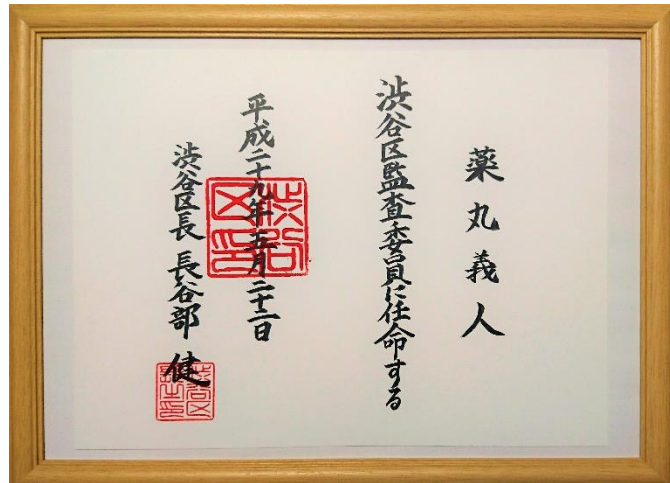 薬丸義人
渋谷区監査委員に任命する
平成二十九年五月二十二日
渋谷区長 長谷部 健
渋谷区印